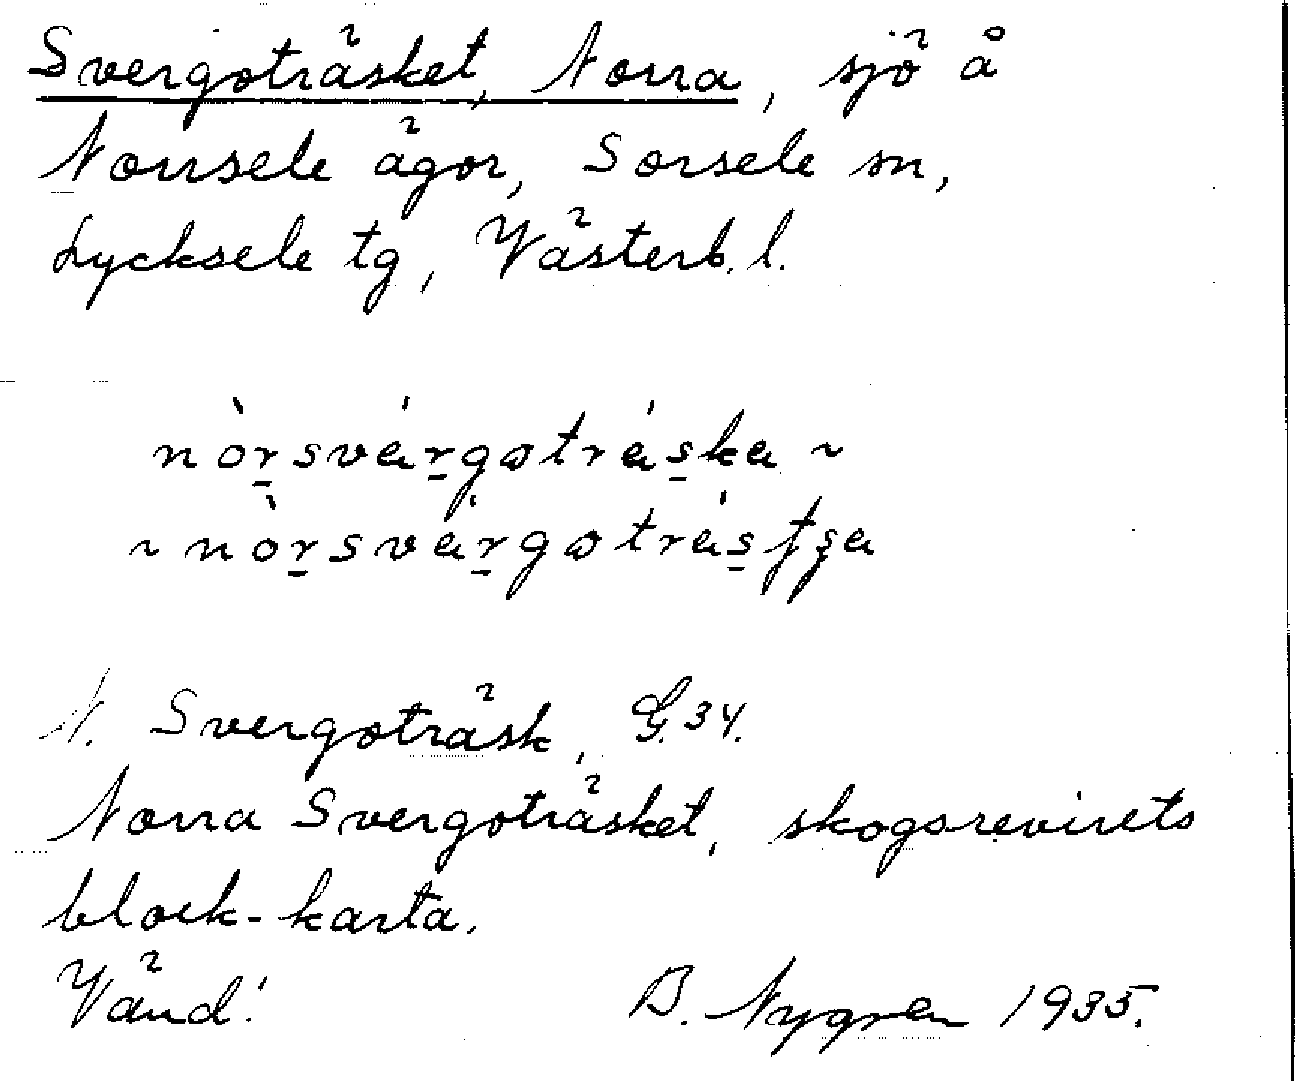 Svergoträsket, Norra, sjö å
Norrsele ägor, Sorsele sn,
Lycksele tg, Västerb. l.
nòr̲svár̲gωtrás̲ka ~
~ nòr̲svár̲gωtrás̲ƭʂa
N. Svergoträsk, G. 34.
Norra Svergoträsket, skogsrevirets
block-karta.
Vänd! B. Nygren 1935.